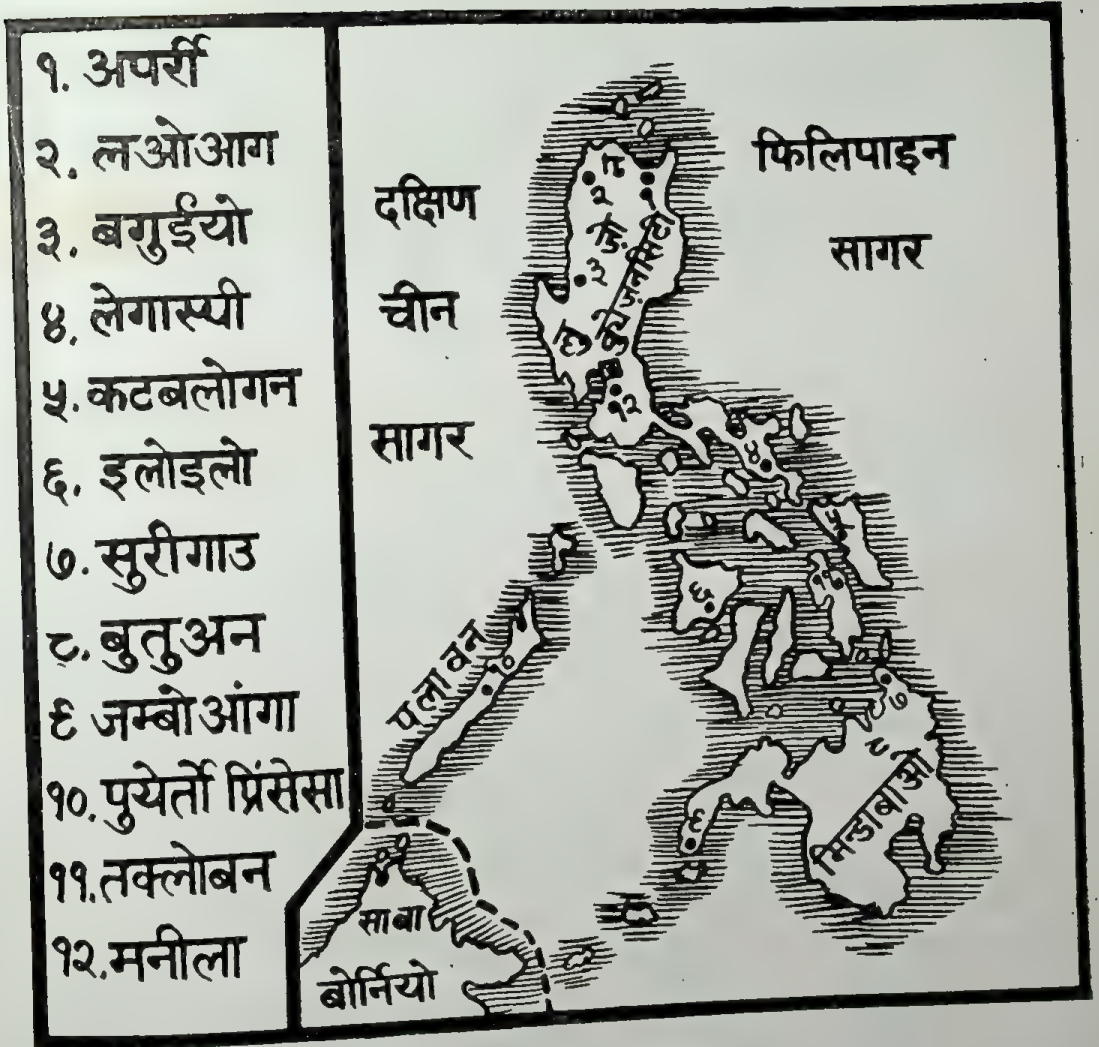 १. अपर्री
२. लओआग
३. बगुईयो
४. लेगास्पी
५. कटबलोगन
६. इलोइलो
७. सुरीगाउ
८. बुतुअन
९ जम्बोआंगा
१०. पुयेर्तो प्रिंसेसा
११. तक्लोबन
१२. मनीला
दक्षिण
चीन
सागर
फिलिपाइन
सागर
१
२
३
लुज़ॉन
१२
४
५
६
११
पलावन
१०
७
८
मिन्डाबाओ
९
साबा
बोर्नियो